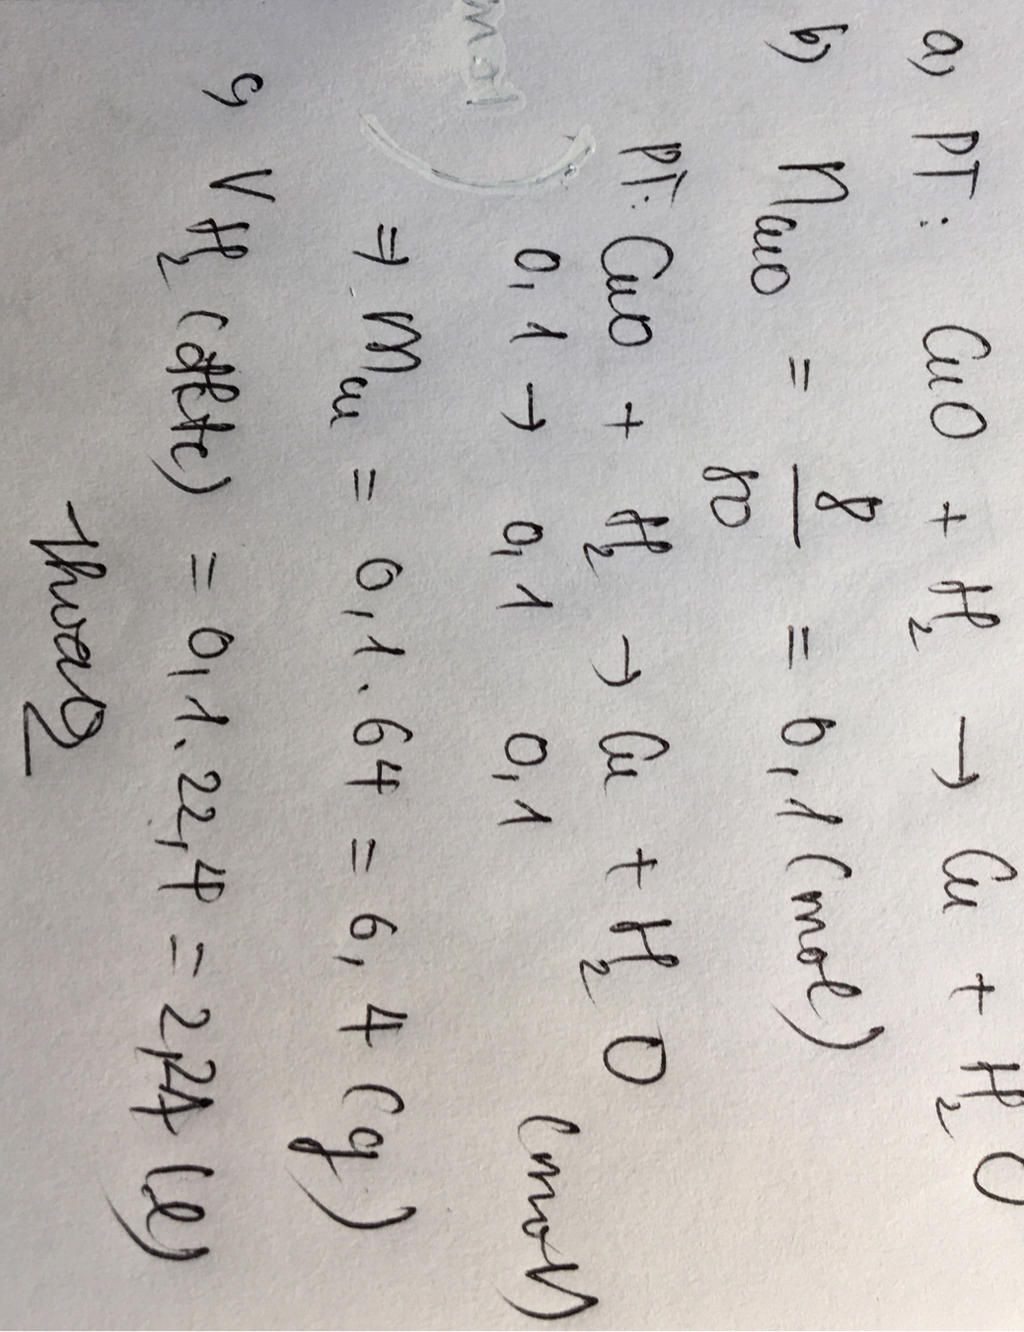 a) PT: CuO + H2 → Cu + H2O
b) nCuO = 8/80 = 0,1 (mol)
PT: CuO + H2 → Cu + H2O
0,1 → 0,1 0,1 (mol)
⇒ mCu = 0,1.64 = 6,4 (g)
c, VH2 (đktc) = 0,1.22,4 = 2,24 (l)